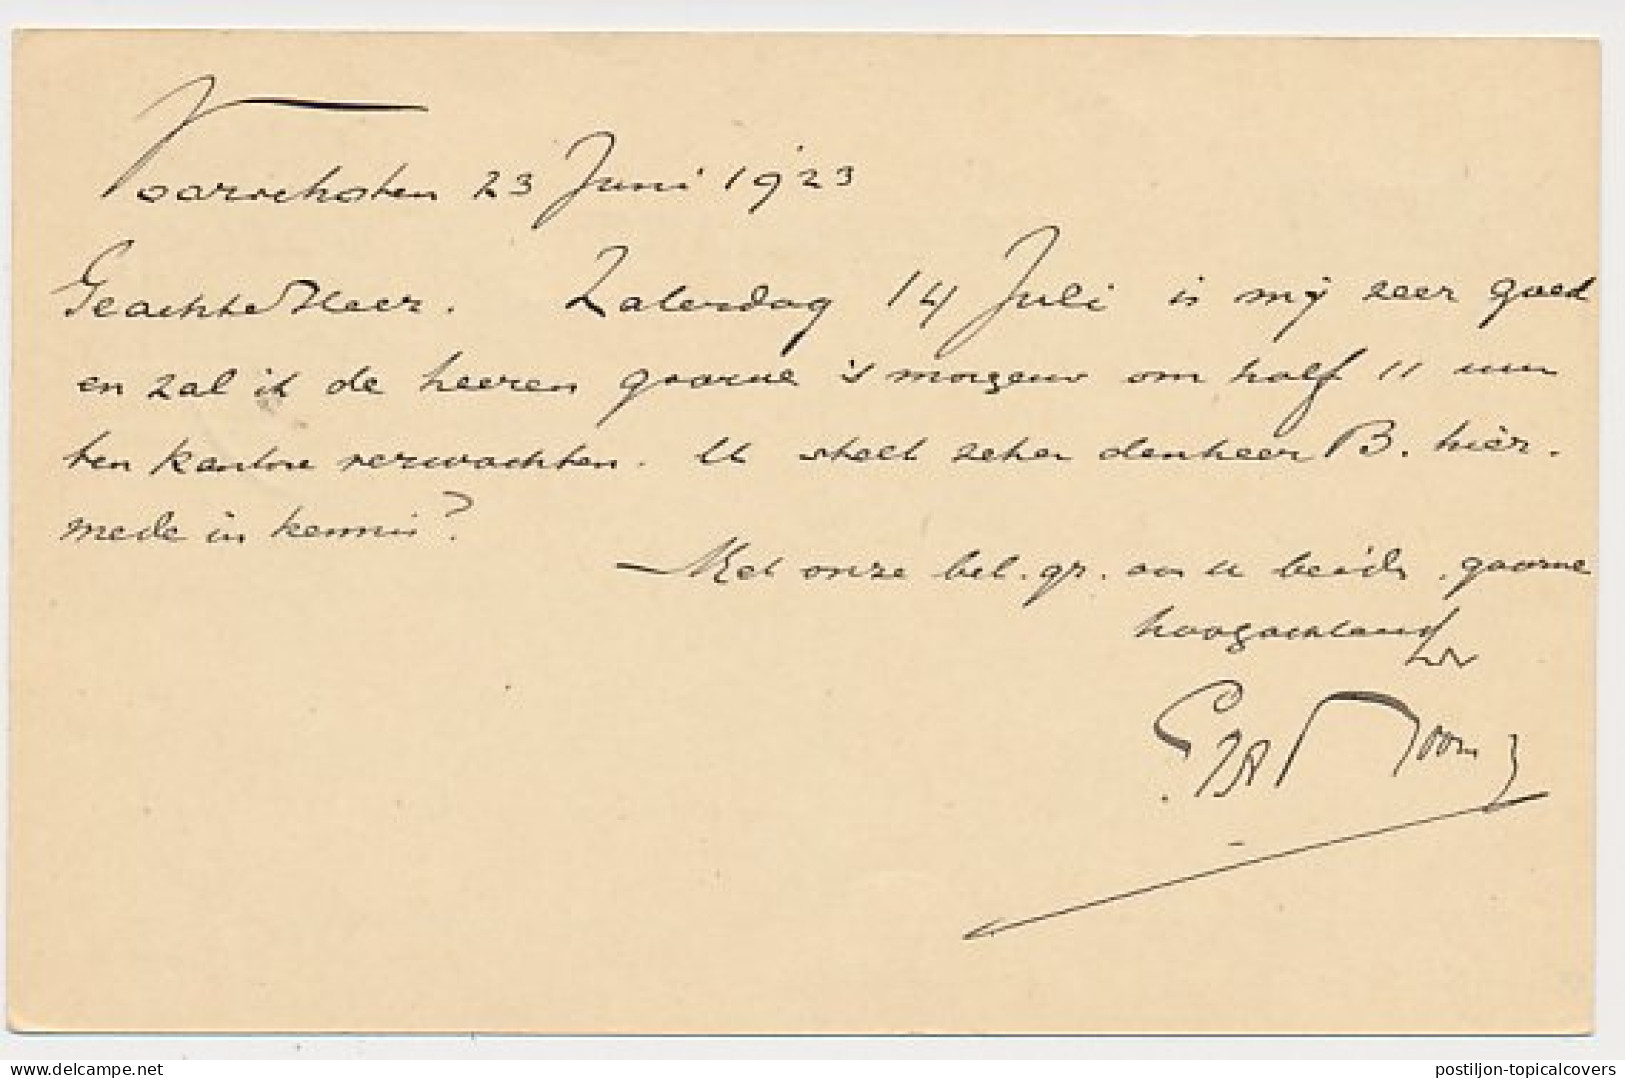 Voorschoten 23 Juni 1923
Geachte Heer. Zaterdag 14 Juli is mij zeer goed
en zal ik de heeren gaarne 's morgens om half 11 uur
ten kantore verwachten. U stelt zeker denheer B. hier.
mede in kennis?
Met onze bel. gr. aan u beide, gaarne
hoogachtend
postiljon-topicalcovers
© www.delcampe.net